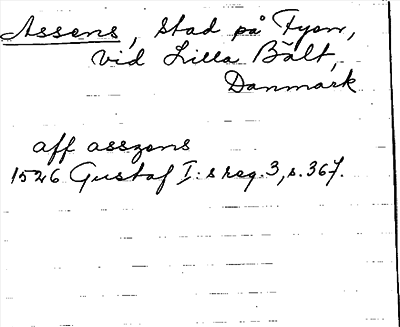 Assens, stad på Fyen,
vid Lilla Bält,
Danmark
aff asszens
1526 Gustaf I:s reg. 3, s. 367.